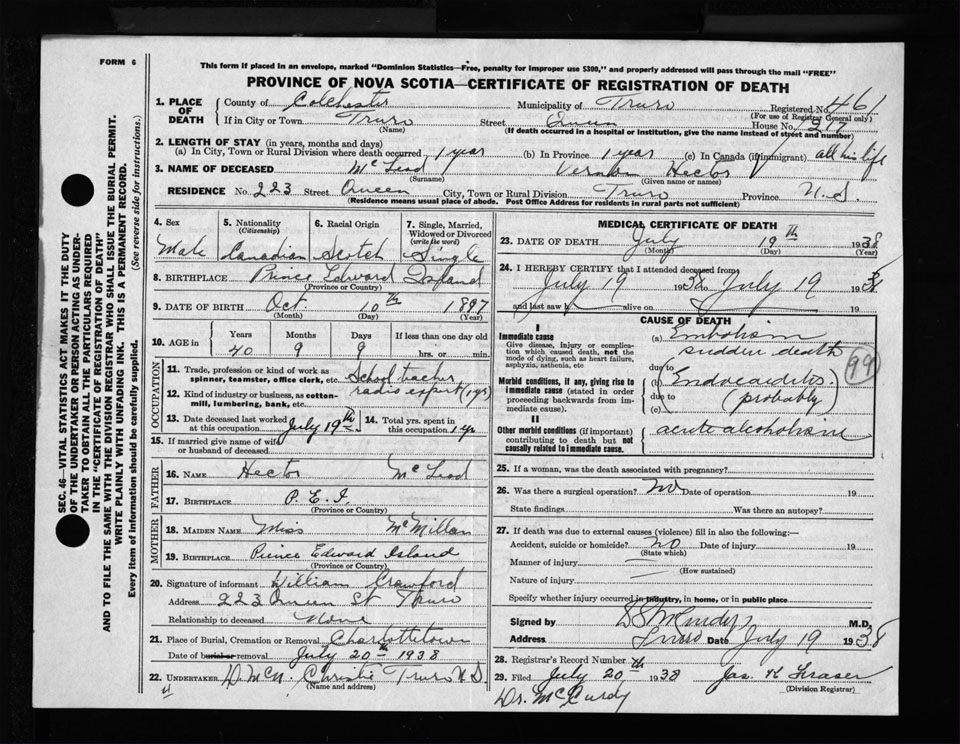 FORM 6
This form if placed in an envelope, marked "Dominion Statistics—Free, penalty for improper use $300," and properly addressed will pass through the mail "FREE"
PROVINCE OF NOVA SCOTIA—CERTIFICATE OF REGISTRATION OF DEATH
1. PLACE OF DEATH County of Colchester Municipality of Truro Registered No. 461
(For use of Registrar General only)
If in City or Town Truro Street Queen House No. 127
(Name) (If death occurred in a hospital or institution, give the name instead of street and number)
2. LENGTH OF STAY (in years, months and days)
(a) In City, Town or Rural Division where death occurred 1 year (b) In Province 1 year (c) In Canada (if immigrant) all his life
3. NAME OF DECEASED McLeod Vernon Hector
(Surname) (Given name or names)
RESIDENCE No. 223 Street Queen City, Town or Rural Division Truro Province N.S.
(Residence means usual place of abode. Post Office Address for residents in rural parts not sufficient)
4. Sex 5. Nationality (Citizenship) 6. Racial Origin 7. Single, Married, Widowed or Divorced (write the word)
Male Canadian Scotch Single
8. BIRTHPLACE Prince Edward Island
(Province or Country)
9. DATE OF BIRTH Oct. 10th 1897
(Month) (Day) (Year)
10. AGE in Years Months Days If less than one day old
40 9 9 hrs. or min.
OCCUPATION
11. Trade, profession or kind of work as spinner, teamster, office clerk, etc. School teacher
12. Kind of industry or business, as cotton-mill, lumbering, bank, etc. radio expert (1 yr)
13. Date deceased last worked at this occupation July 19th 14. Total yrs. spent in this occupation 1 yr
15. If married give name of wife or husband of deceased
FATHER
16. NAME Hector McLeod
17. BIRTHPLACE P.E.I.
(Province or Country)
MOTHER
18. MAIDEN NAME Miss McMillan
19. BIRTHPLACE Prince Edward Island
(Province or Country)
20. Signature of informant William Crawford
Address 223 Queen St Truro
Relationship to deceased None
21. Place of Burial, Cremation or Removal Charlottetown
Date of burial or removal July 20th 1938
22. UNDERTAKER D. McN. Christie Truro N.S.
(Name and address)
MEDICAL CERTIFICATE OF DEATH
23. DATE OF DEATH July 19th 1938
(Month) (Day) (Year)
24. I HEREBY CERTIFY that I attended deceased from
July 19 1938 to July 19 1938
and last saw h alive on 19
CAUSE OF DEATH
I
Immediate cause
Give disease, injury or complication which caused death, not the mode of dying, such as heart failure, asphyxia, asthenia, etc
(a) Embolism
sudden death
due to
99
Morbid conditions, if any, giving rise to immediate cause (stated in order proceeding backwards from immediate cause).
(b) Endocarditis
due to (probably)
(c)
II
Other morbid conditions (if important) contributing to death but not causally related to immediate cause.
acute alcoholism
25. If a woman, was the death associated with pregnancy?
26. Was there a surgical operation? No Date of operation 19
State findings Was there an autopsy?
27. If death was due to external causes (violence) fill in also the following:—
Accident, suicide or homicide? no Date of injury 19
(State which)
Manner of injury
(How sustained)
Nature of injury
Specify whether injury occurred in industry, in home, or in public place
Signed by M.D.
Address Truro Date July 19 1938
28. Registrar's Record Number
29. Filed July 20th 1938 Jas. H Fraser
(Division Registrar)
Dr. McCurdy
SEC. 46—VITAL STATISTICS ACT MAKES IT THE DUTY
OF THE UNDERTAKER OR PERSON ACTING AS UNDERTAKER TO OBTAIN ALL THE PARTICULARS REQUIRED
IN THE "CERTIFICATE OF REGISTRATION OF DEATH"
AND TO FILE THE SAME WITH THE DIVISION REGISTRAR WHO SHALL ISSUE THE BURIAL PERMIT.
WRITE PLAINLY WITH UNFADING INK. THIS IS A PERMANENT RECORD.
Every item of information should be carefully supplied. (See reverse side for instructions.)